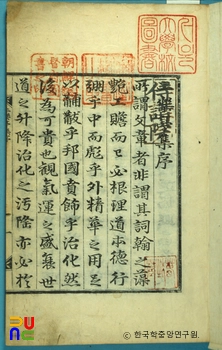 集序
所謂文章者非謂其詞翰之藻
艶工贍而已必根理道本德行
弸乎中而彪乎外精華之用足
以黼黻乎邦國賁飾乎治化然
後為可貴也觀氣運之盛衰世
道之升降治化之汚隆亦必於
한국학중앙연구원